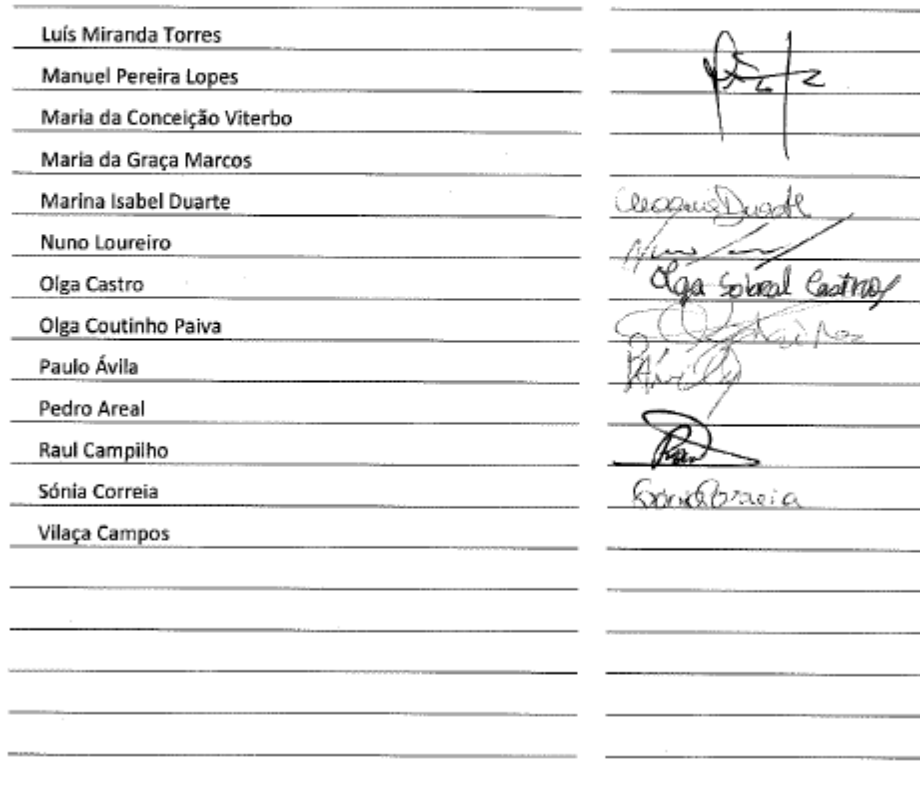 Luís Miranda Torres
Manuel Pereira Lopes
Maria da Conceição Viterbo
Maria da Graça Marcos
Marina Isabel Duarte Duarte
Nuno Loureiro Nuno
Olga Castro Olga Sobral Castro
Olga Coutinho Paiva
Paulo Ávila PÁvila
Pedro Areal
Raul Campilho
Sónia Correia Sónia Correia
Vilaça Campos